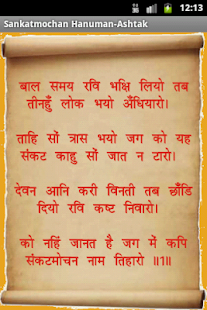 12:13
Sankatmochan Hanuman-Ashtak
बाल समय रवि भक्षि लियो तब
तीनहुँ लोक भयो अँधियारो।
ताहि सों त्रास भयो जग को यह
संकट काहु सों जात न टारो।
देवन आनि करी विनती तब छाँडि
दियो रवि कष्ट निवारो।
को नहिं जानत है जग में कपि
संकटमोचन नाम तिहारो ॥1॥